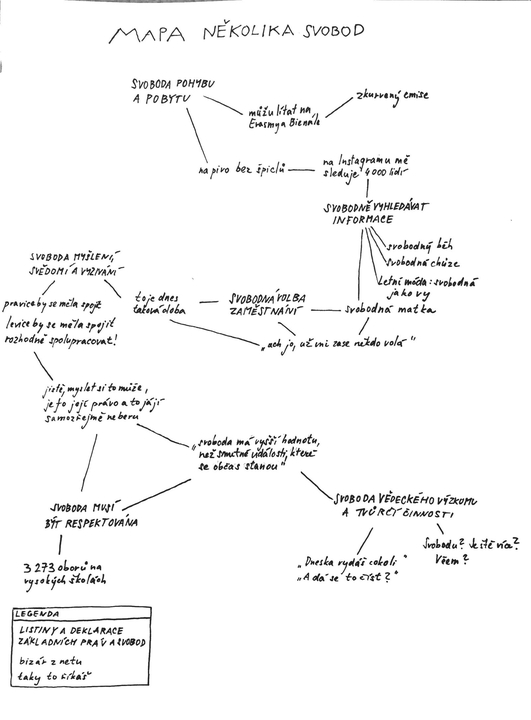 MAPA NĚKOLIKA SVOBOD
SVOBODA POHYBU
A POBYTU
můžu lítat na
Erasmy a Bienále
zkurvaný emise
na pivo bez špiclů
na Instagramu mě
sleduje 4000 lidí
SVOBODNĚ VYHLEDÁVAT
INFORMACE
svobodný běh
svobodná chůze
Letní móda: svobodná
jako vy
svobodná matka
SVOBODA MYŠLENÍ,
SVĚDOMÍ A VYZNÁNÍ
pravice by se měla spojit
levice by se měla spojit
rozhodně spolupracovat!
to je dnes
taková doba
SVOBODNÁ VOLBA
ZAMĚSTNÁNÍ
„ach jo, už mi zase někdo volá"
jistě, myslet si to může,
je to její právo a to já jí
samozřejmě neberu
„svoboda má vyšší hodnotu,
než smutné události, které
se občas stanou"
SVOBODA MUSÍ
BÝT RESPEKTOVÁNA
3 273 oborů na
vysokých školách
SVOBODA VĚDECKÉHO VÝZKUMU
A TVŮRČÍ ČINNOSTI
„Dneska vydáš cokoli"
„A dá se to číst?"
Svobodu? Ještě více?
Všem?
LEGENDA
LISTINY A DEKLARACE
ZÁKLADNÍCH PRÁV A SVOBOD
bizár z netu
taky to říkáš